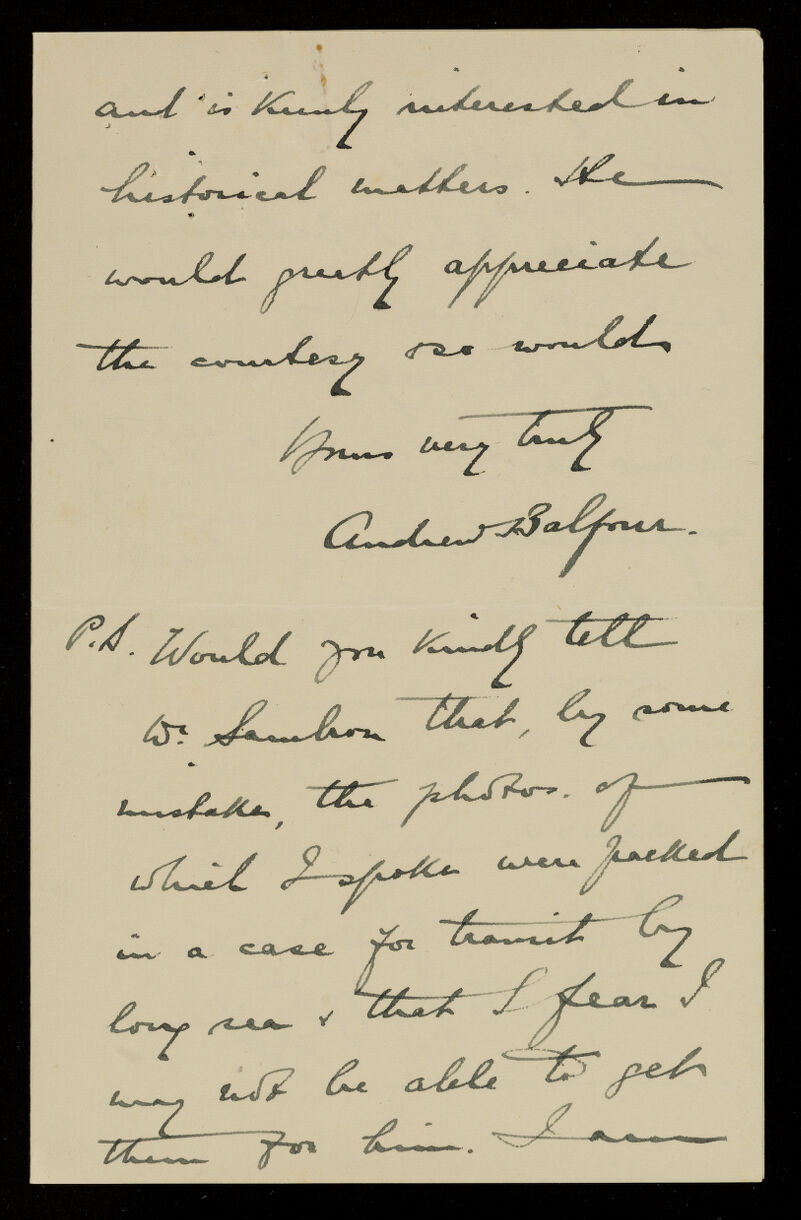 and is keenly interested in
historical matters. He
would greatly appreciate
the courtesy as would
Yours very truly
Andrew Balfour.
P.S. Would you kindly tell
Dr. Sambon that, by some
mistake, the photos. of
which I spoke were packed
in a case for transit by
long sea & that I fear I
may not be able to get
them for him. I am